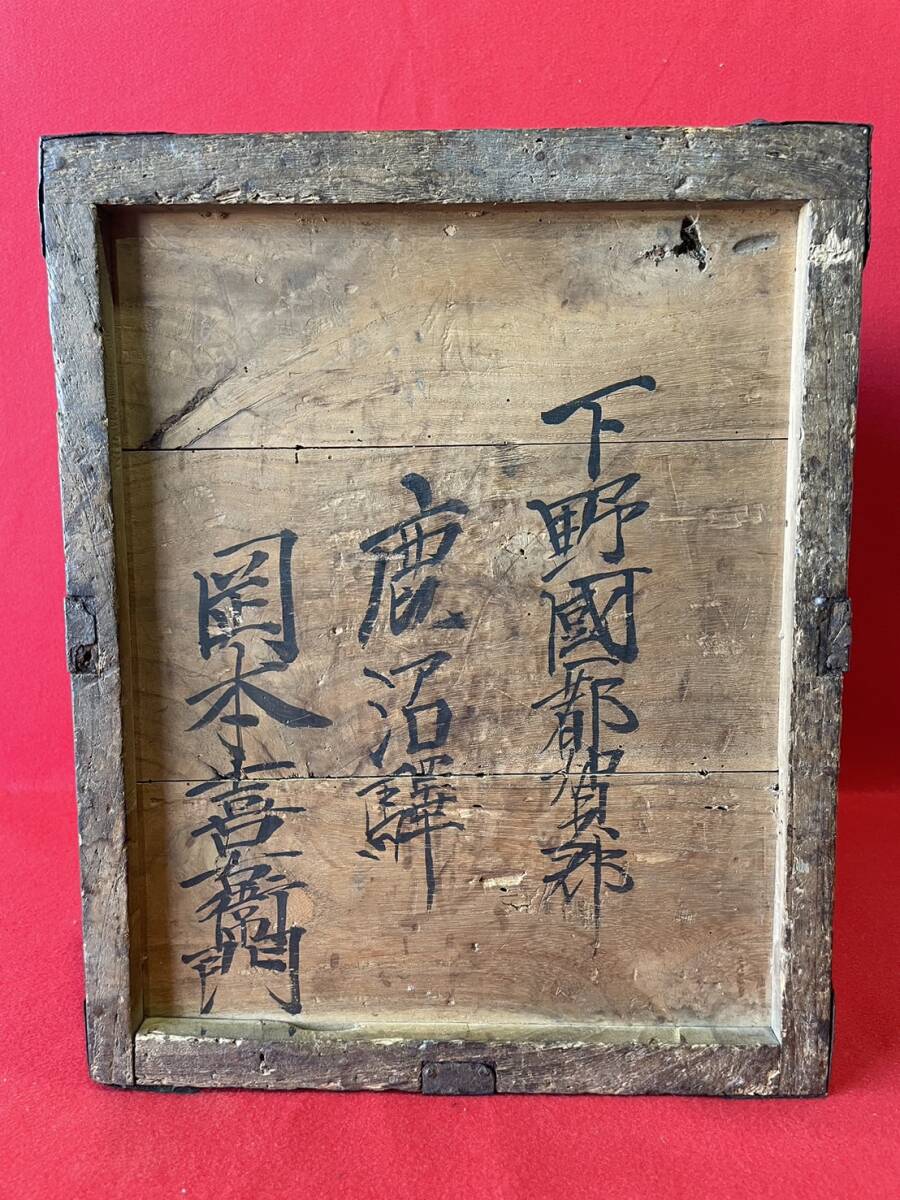 下野國都賀郡
鹿沼驛
岡本喜右衛門